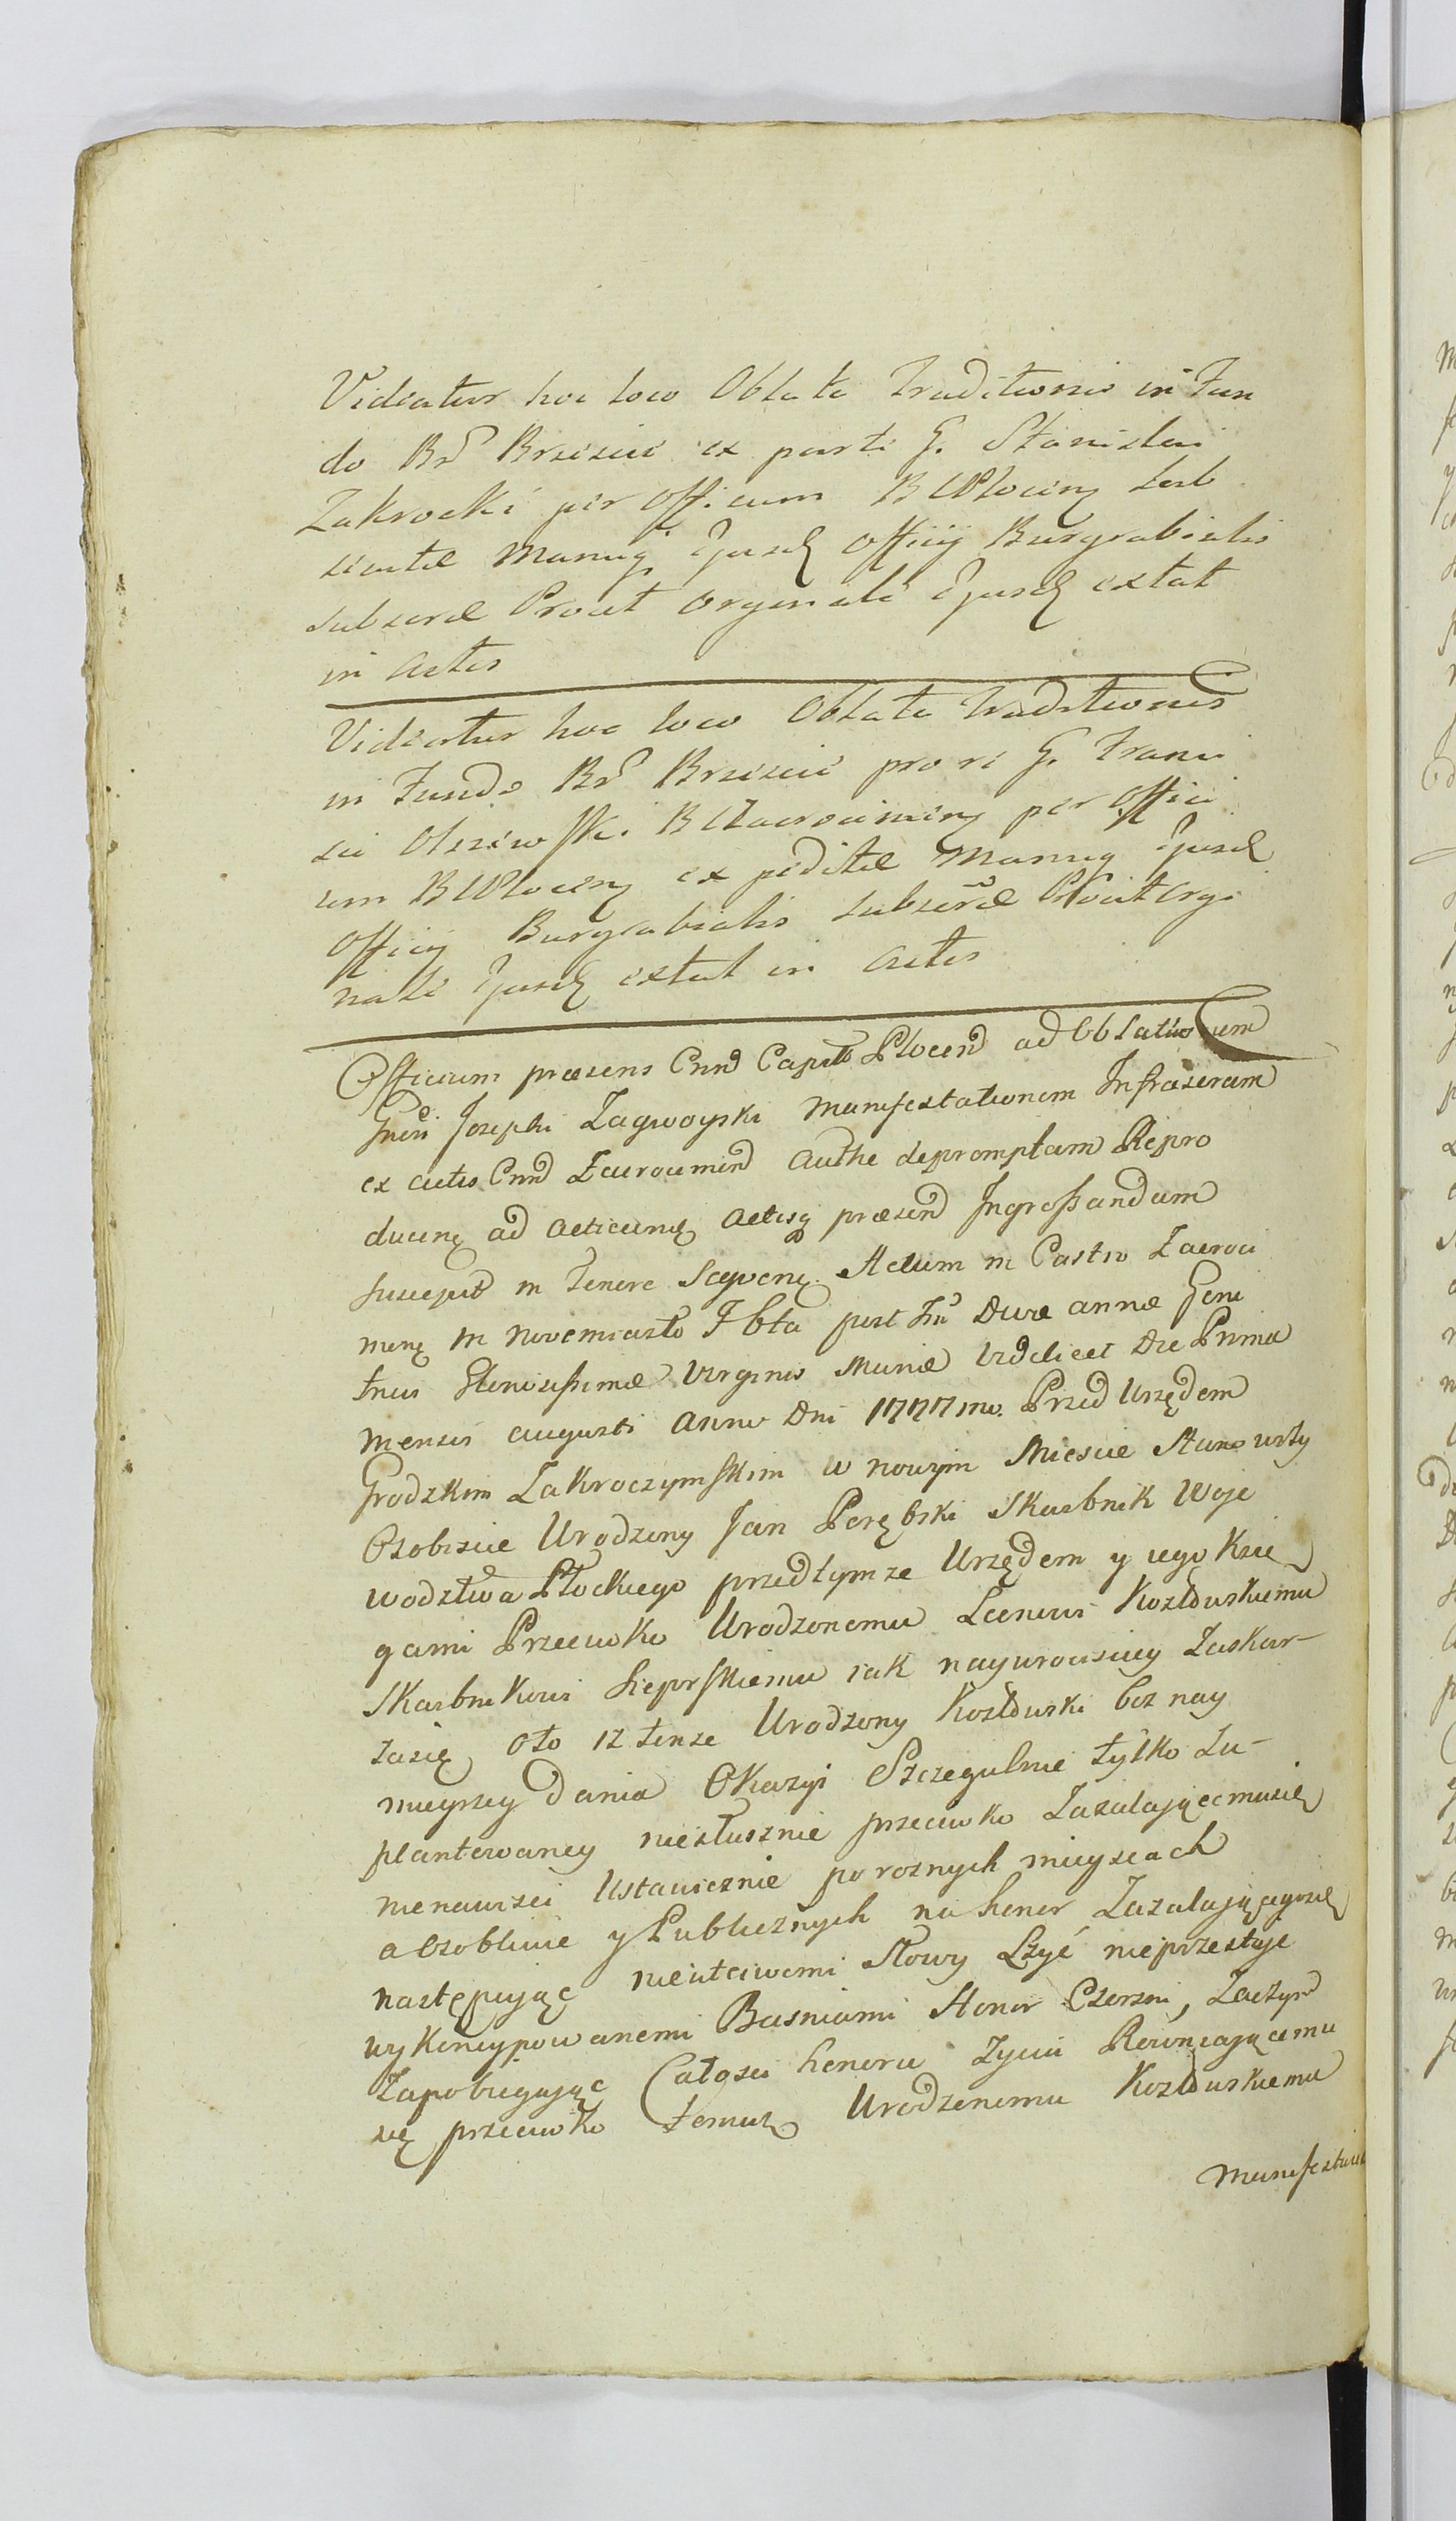 Videatur hoc loco Oblata Traditionis in Fun
do Br̃ Brzescie ex parte G. Stanislai
Zakrocki per Officium B Plocen sub
Manuq̃ Ejusd Officij Burgrabialis
subscræ Prout Orginale Ejusd extat
in Actis
Videatur hoc loco Oblata Traditionis
in Fundo Br̃ Brzescie pro re G. Franci
sci Olszewski per Offici
um B Plocen ex peditæ Manuq̃ Ejusd
Officij Burgrabialis subscr̃æ Prout Orgi
nale Ejusd extat in Actis
Officium præsens Cnñ Capitle Plocenñ ad Oblationem
Gnẽsi Josephi Zagwoyski Manifestationem Infrascram
ex actis Cnñ Zacrocimenñ Authe depromptam Repro
ducenę ad acticanę Actisq̃ præsenñ Ingrossandum
suscepit in Tenore Seqvenę. Actum in Castro Zacroci
menę in Novemiasto F bta post Fũ Divæ annæ Geni
tricis Glorisissimæ Virginis Mariæ Videlicet Die Prima
Mensis augusti Anno Dni 1777mo. Przed Urzędem
Grodzkim Zakroczymskim w Nowym Miescie Stanowszy
Osobiscie Urodzony Jan Porębski Skarbnik Woje
wodztwa Płockiego przedtymze Urzędem y iego Xsię
gami Przeciwko Urodzonemu Kozłowskiemu
Skarbnikowi Sieprskiemu iak nayurocisciey Zaskar-
zasię Oto iz tenze Urodzony Kozłowski bez nay
mnieyszey Dania Okazyi Szczegulnie tylko Zu-
plantowaney niesłusznie przeciwko Zazalającemusię
nienawisci Ustawicznie po roznych mieyscach
a Osobliwie y Publicznych na honor Zazalającegosię
następując nieutciwemi Słowy Lzyć nieprzestaje
wykoncypowanemi Basniami Honor Czerni, Zaczym
Zapobiegając Całosci honoru Zyciu Rownającemu
się przeciwko temuz Urodzonemu Kozłowskiemu
Manifestuie